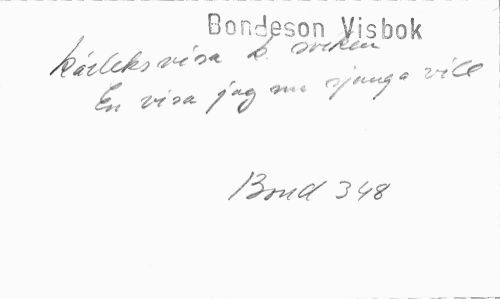 Bondeson Visbok
Kärleksvisa k. sviken
En visa jag nu sjunga vill
Bond 348